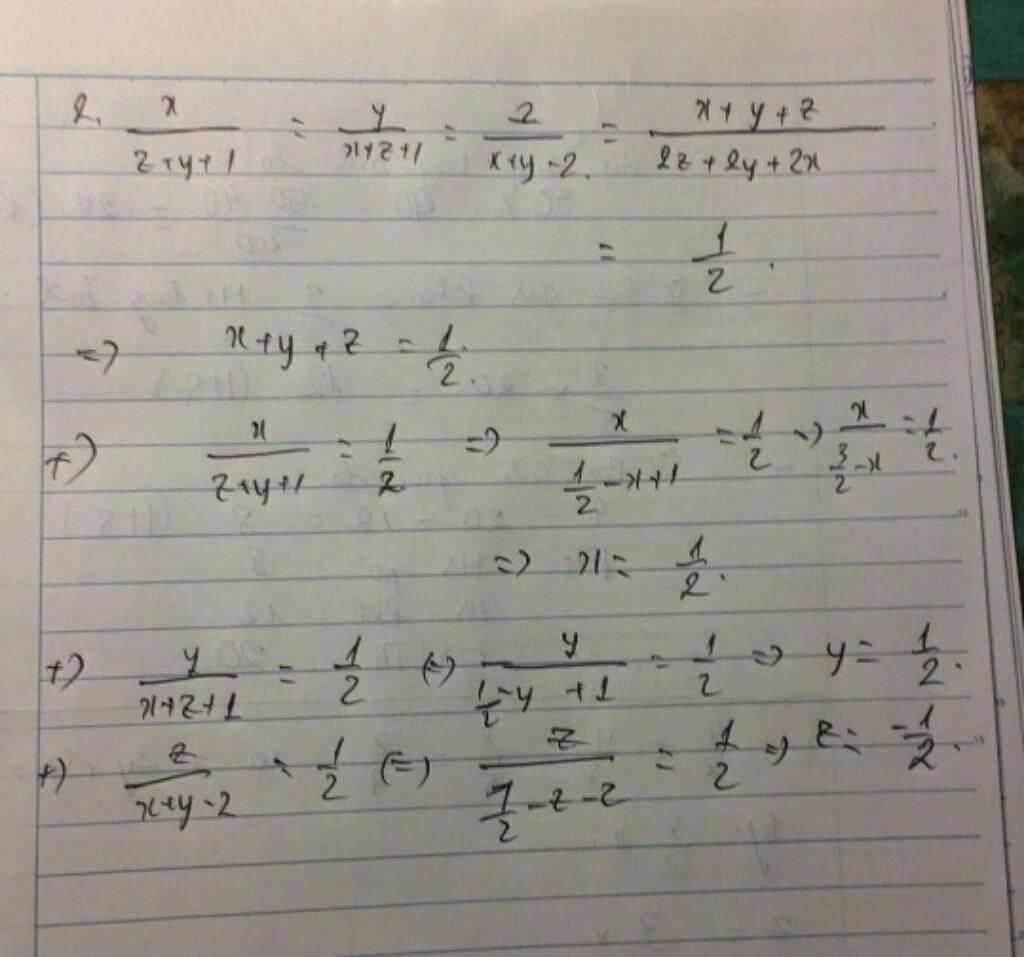 2. x/(z+y+1) = y/(x+z+1) = z/(x+y-2) = (x+y+z)/(2z+2y+2x)
= 1/2.
=> x+y+z = 1/2.
+) x/(z+y+1) = 1/2 => x/(1/2-x+1) = 1/2 => x/(3/2-x) = 1/2.
=> x = 1/2.
+) y/(x+z+1) = 1/2 (=) y/(1/2-y+1) = 1/2 => y = 1/2.
+) z/(x+y-2) = 1/2 (=) z/(1/2-z-2) = 1/2 => z = -1/2.